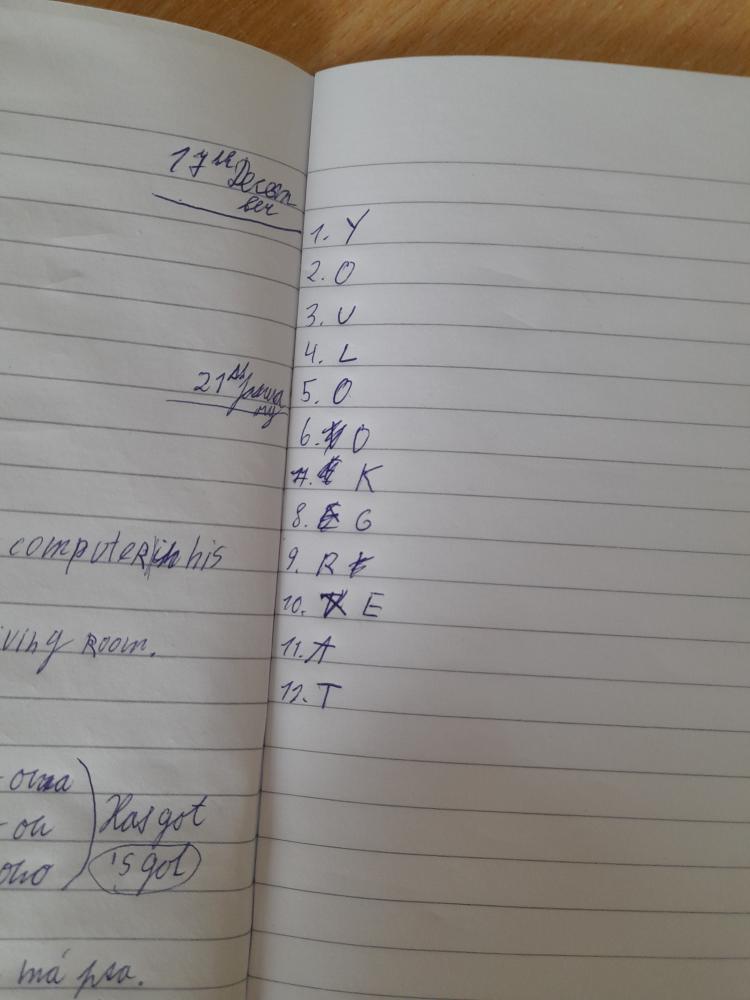 17th Decem
ber
21st
computer in his
iving room.
ona
on
ono
Has got
's got
má psa.
1. Y
2. O
3. U
4. L
5. O
6. O
7. K
8. G
9. R
10. E
11. A
12. T